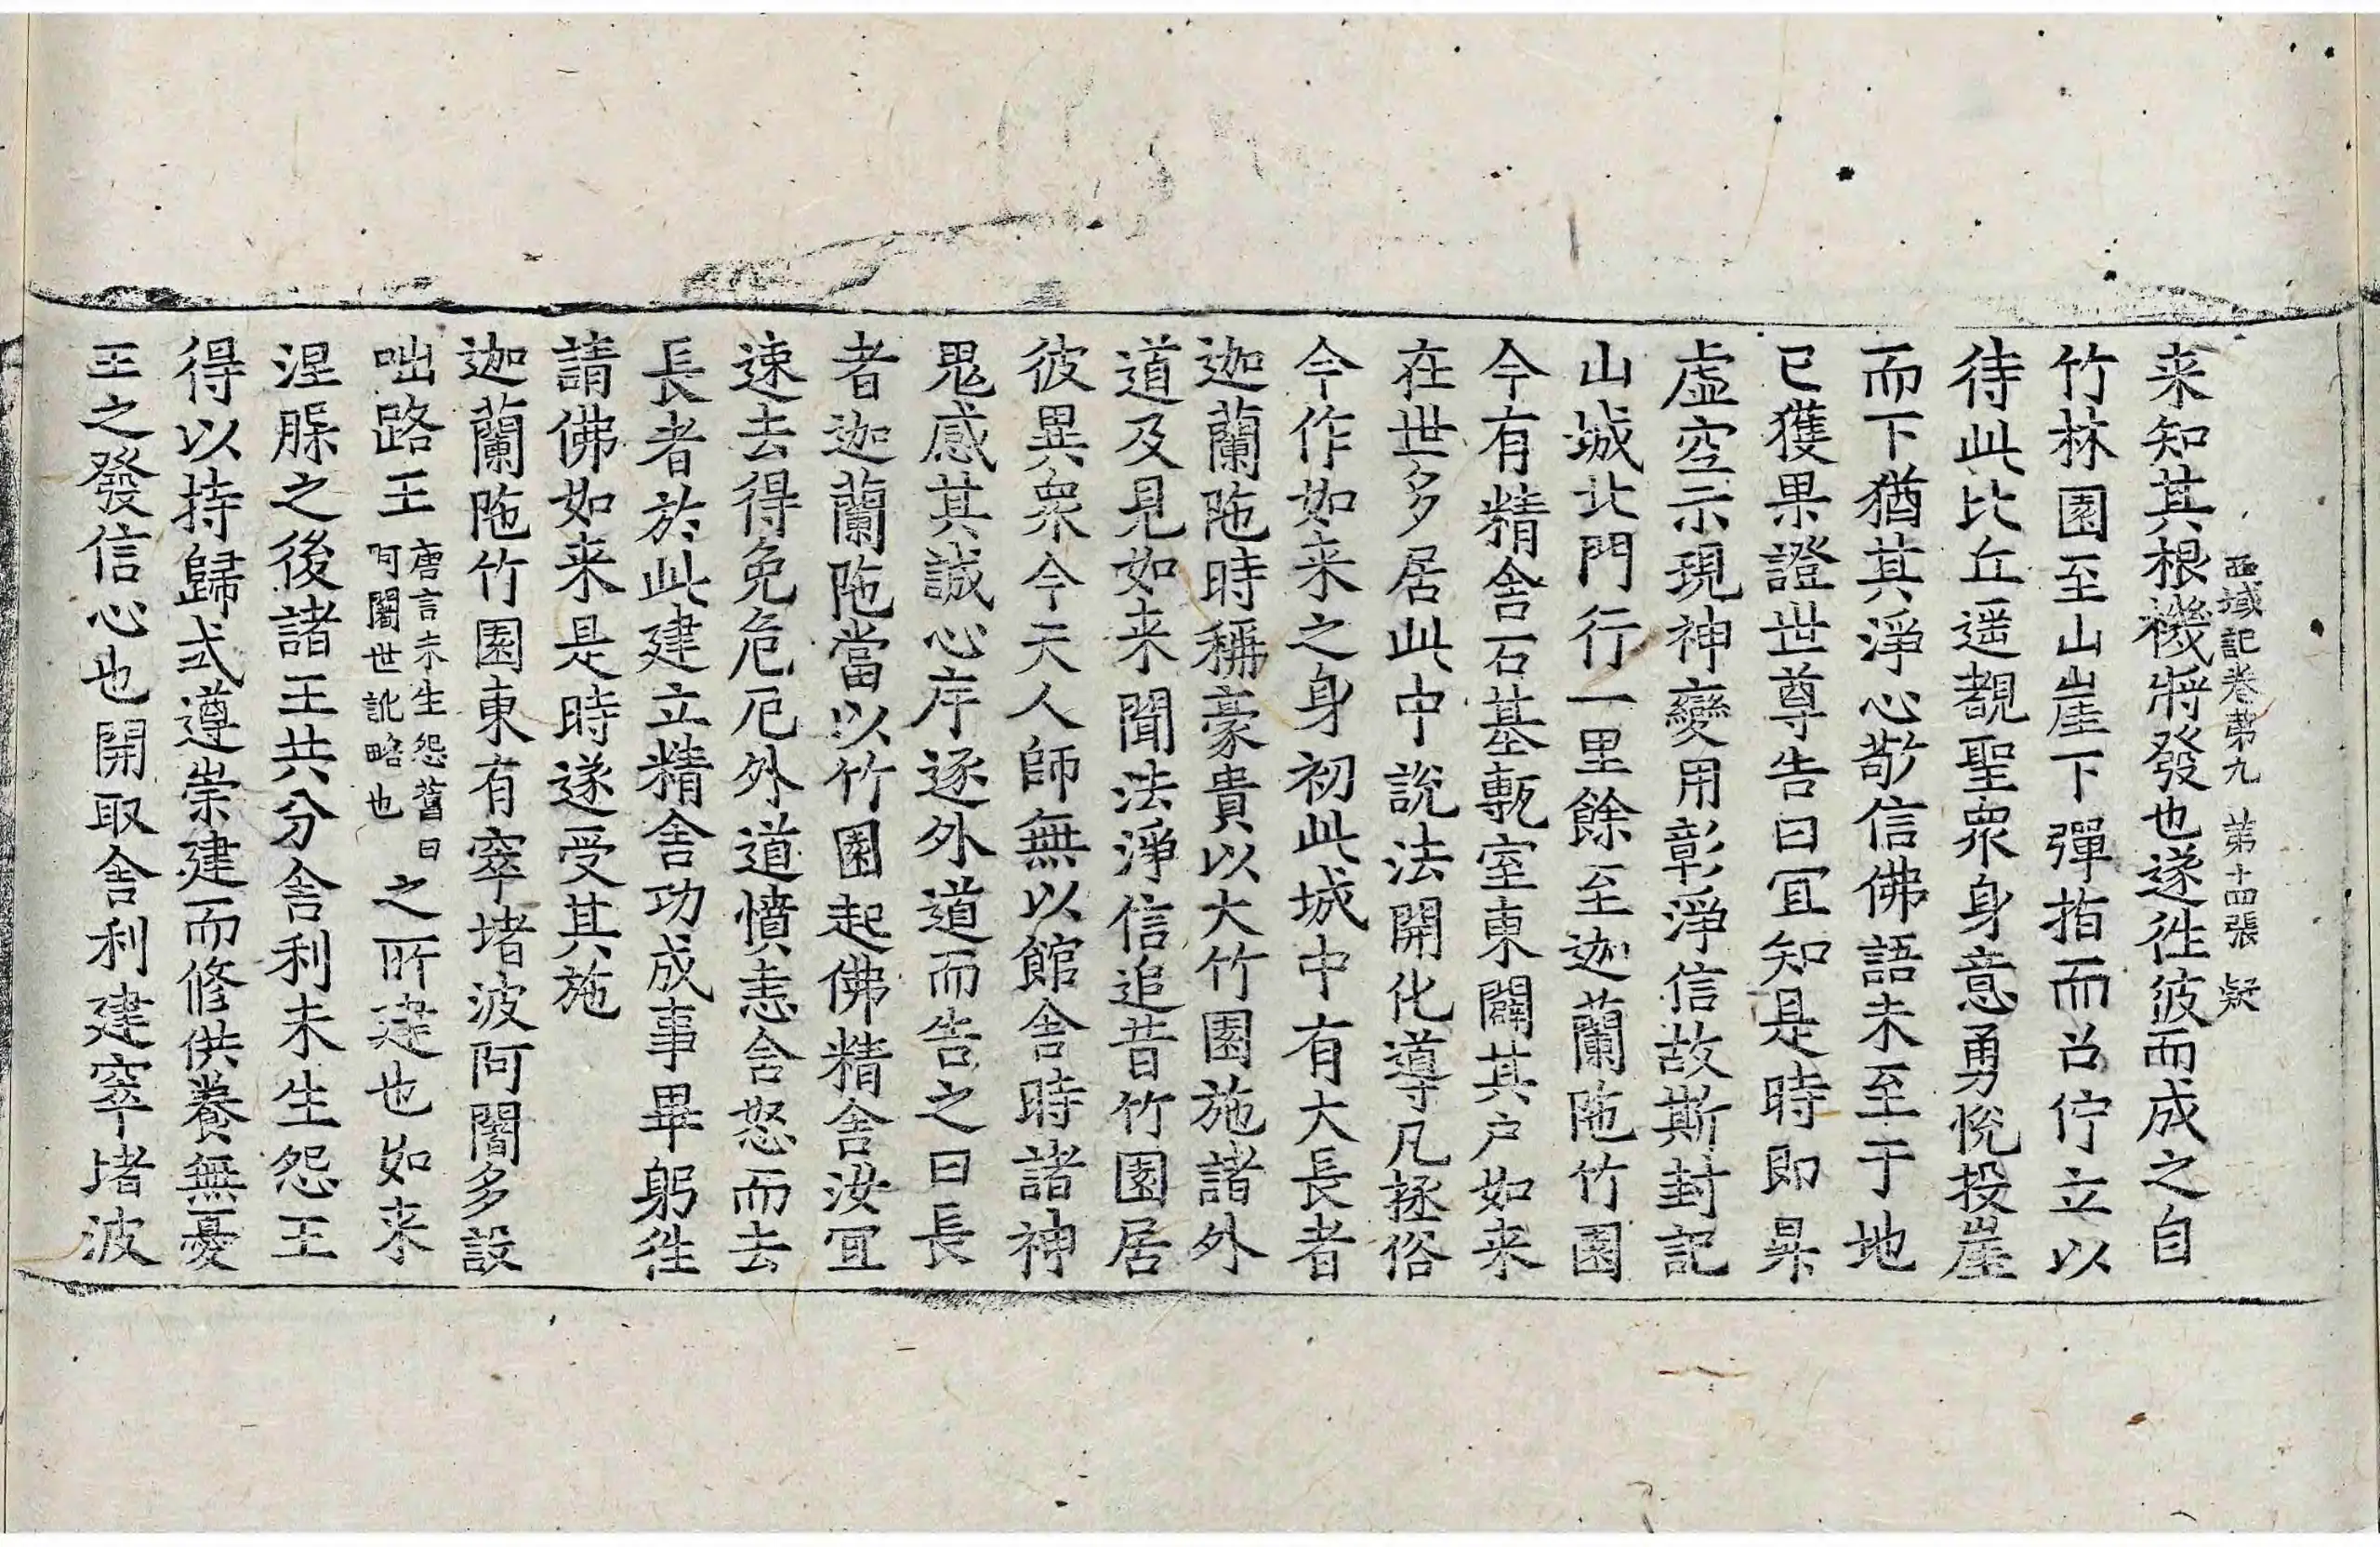 西域記卷第九 第十四張 疑
来知其根機將發也遂往彼而成之自
竹林園至山崖下彈指而召佇立以
待此比丘遥覩聖衆身意勇悅投崖
而下猶其淨心敬信佛語未至于地
已獲果證世尊告曰冝知是時即昇
虛空示現神變用彰淨信故斯封記
山城北門行一里餘至迦蘭陁竹園
今有精舍石基甎室東闢其户如来
在世多居此中說法開化導凡拯俗
今作如来之身初此城中有大長者
迦蘭陁時稱豪貴以大竹園施諸外
道及見如来聞法淨信追昔竹園居
彼異衆今天人師無以館舍時諸神
鬼感其誠心斥逐外道而告之曰長
者迦蘭陁當以竹園起佛精舍汝冝
速去得免危厄外道憤恚含怒而去
長者於此建立精舍功成事畢躬往
請佛如来是時遂受其施
迦蘭陁竹園東有窣堵波阿闍多設
咄路王唐言未生怨舊曰阿闍世訛略也之所建也如来
涅槃之後諸王共分舍利未生怨王
得以持歸式遵崇建而修供養無憂
王之發信心也開取舍利建窣堵波